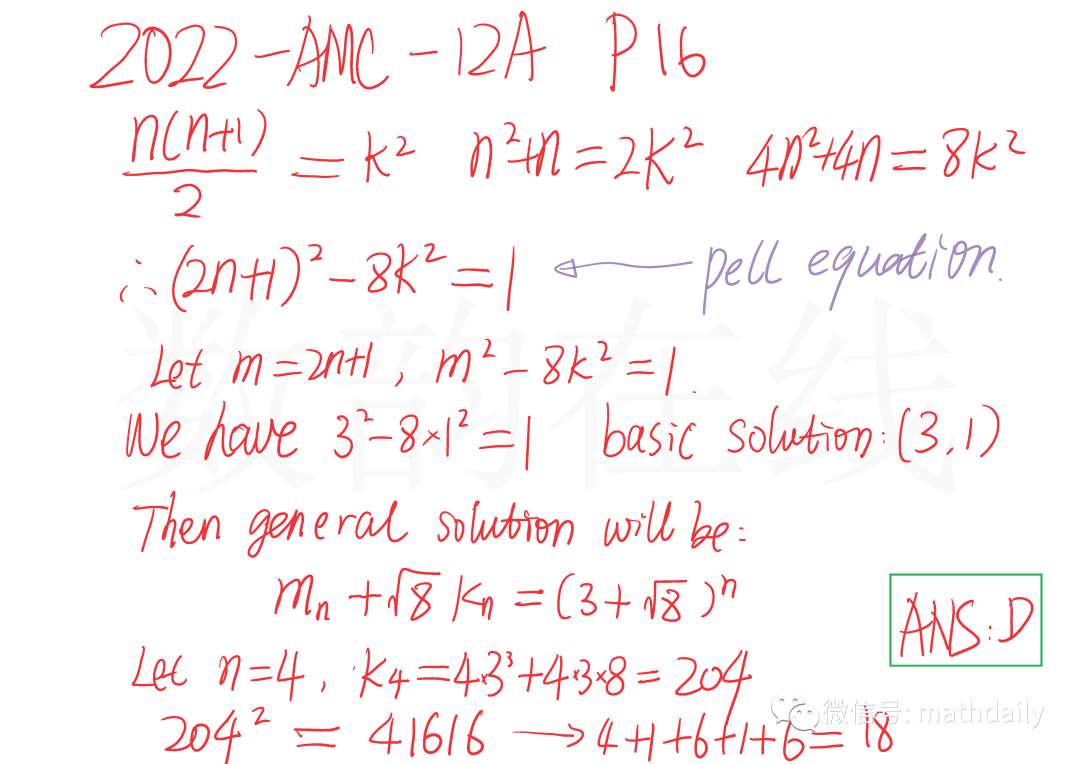 2022-AMC-12A P16
n(n+1)/2 = k² n²+n=2k² 4n²+4n=8k²
∴(2n+1)²-8k²=1 ← pell equation.
Let m=2n+1, m²-8k²=1.
We have 3²-8×1²=1 basic solution:(3,1)
Then general solution will be:
mₙ+√8 kₙ=(3+√8)ⁿ
ANS:D
Let n=4, k₄=4·3³+4·3×8=204
204² = 41616 → 4+1+6+1+6=18
数韵在线
微信号: mathdaily